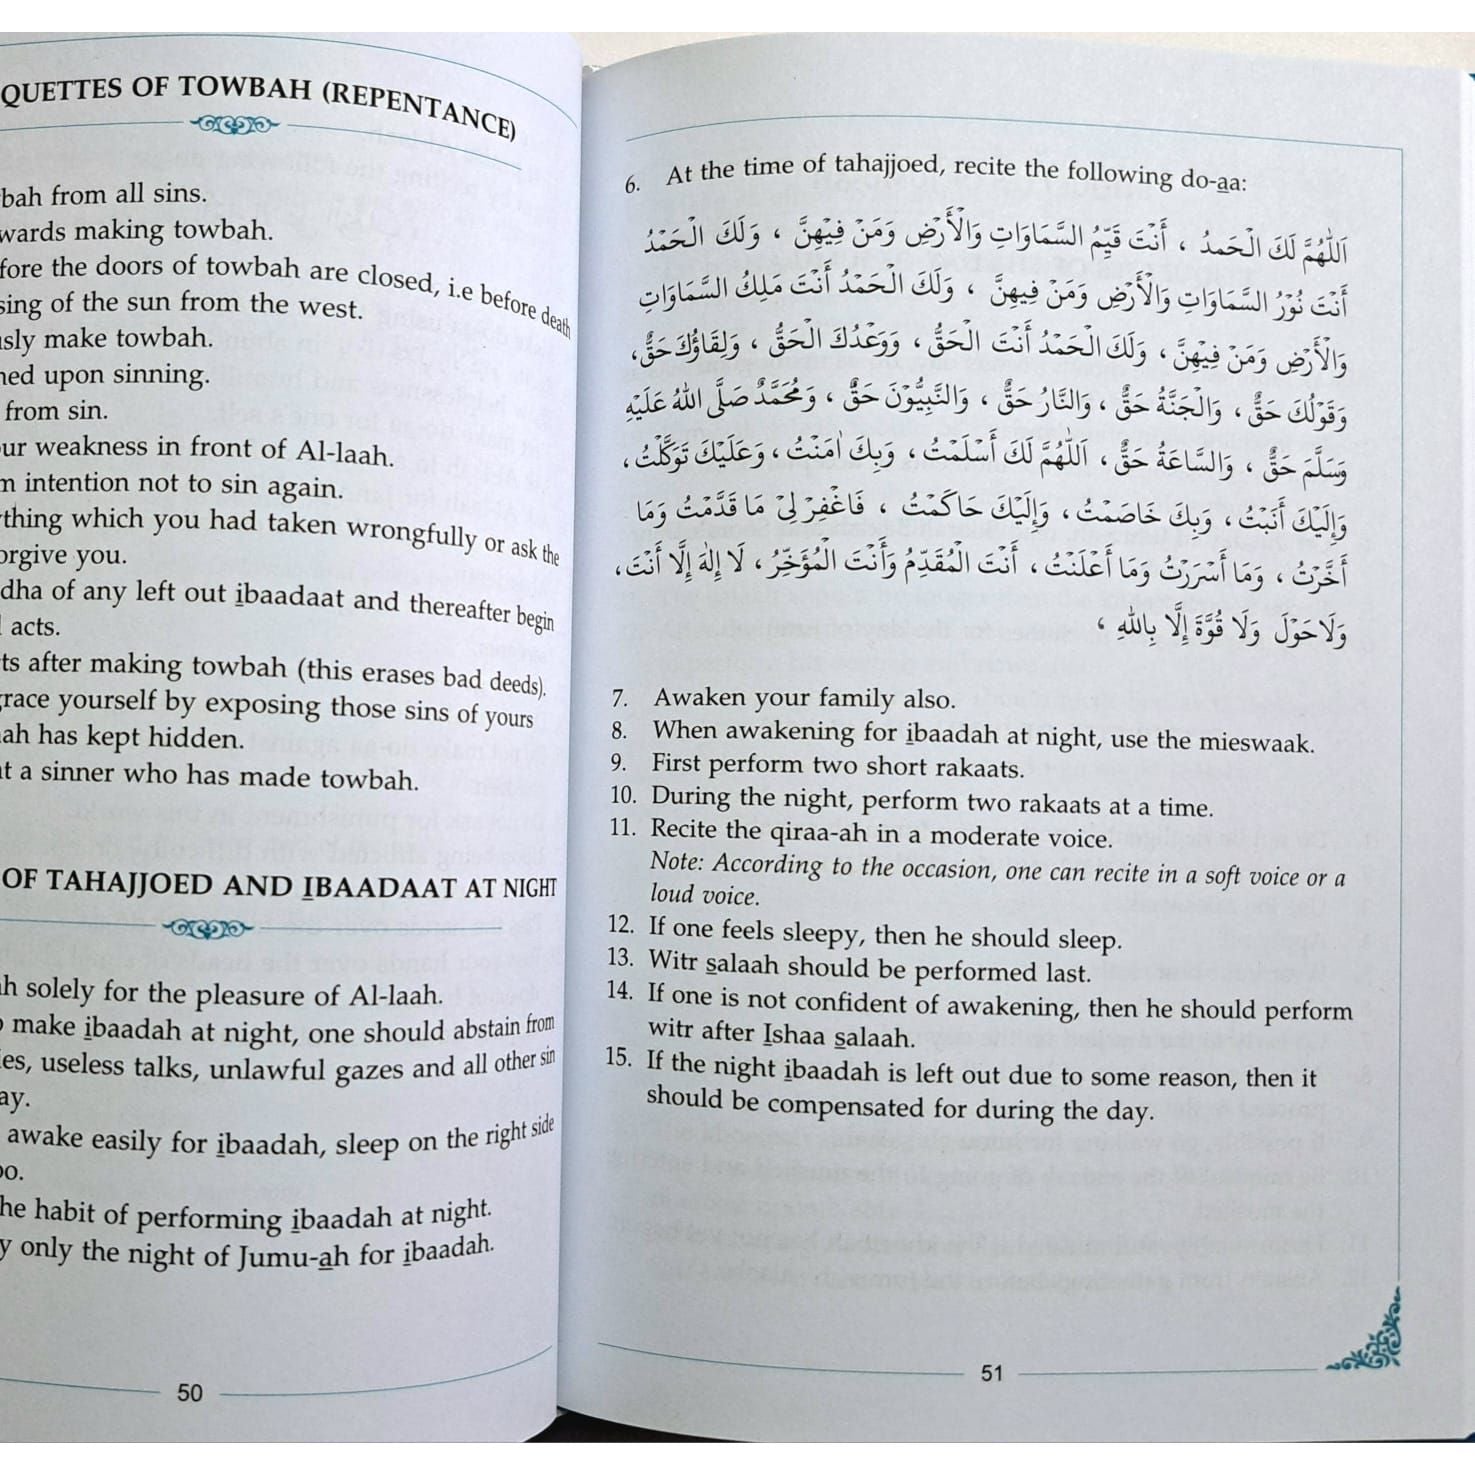 QUETTES OF TOWBAH (REPENTANCE)
bah from all sins.
wards making towbah.
fore the doors of towbah are closed, i.e before death
sing of the sun from the west.
sly make towbah.
ned upon sinning.
from sin.
ur weakness in front of Al-laah.
m intention not to sin again.
thing which you had taken wrongfully or ask the
orgive you.
dha of any left out ibaadaat and thereafter begin
acts.
ts after making towbah (this erases bad deeds).
race yourself by exposing those sins of yours
ah has kept hidden.
t a sinner who has made towbah.
OF TAHAJJOED AND IBAADAAT AT NIGHT
h solely for the pleasure of Al-laah.
o make ibaadah at night, one should abstain from
ies, useless talks, unlawful gazes and all other sin
ay.
awake easily for ibaadah, sleep on the right side
oo.
he habit of performing ibaadah at night.
y only the night of Jumu-ah for ibaadah.
50
6. At the time of tahajjoed, recite the following do-aa:
اَللّٰهُمَّ لَكَ الْحَمدُ ، أَنْتَ قَيِّمُ السَّمَاوَاتِ وَالْأَرْضِ وَمَنْ فِيْهِنَّ ، وَلَكَ الْحَمْدُ
أَنْتَ نُوْرُ السَّمَاوَاتِ وَالْأَرْضِ وَمَنْ فِيهِنَّ ، وَلَكَ الْحَمْدُ أَنْتَ مَلِكُ السَّمَاوَاتِ
وَالْأَرْضِ وَمَنْ فِيْهِنَّ، وَلَكَ الْحَمْدُ أَنْتَ الْحَقُّ، وَوَعْدُكَ الْحَقُّ ، وَلِقَاؤُكَ حَقٌّ،
وَقَوْلُكَ حَقٌّ، وَالْجَنَّةُ حَقٌّ ، وَالنَّارُ حَقٌّ ، وَالنَّبِيُّوْنَ حَقٌّ ، وَمُحَمَّدٌ صَلَّى اللهُ عَلَيْهِ
وَسَلَّمَ حَقٌّ ، وَالسَّاعَةُ حَقٌّ ، اَللّٰهُمَّ لَكَ أَسْلَمْتُ، وَبِكَ اٰمَنْتُ، وَعَلَيْكَ تَوَكَّلْتُ،
وَإِلَيْكَ أَنَبْتُ، وَبِكَ خَاصَمْتُ، وَإِلَيْكَ حَاكَمْتُ ، فَاغْفِرْ لِيْ مَا قَدَّمْتُ وَمَا
أَخَّرْتُ ، وَمَا أَسْرَرْتُ وَمَا أَعْلَنْتُ، أَنْتَ الْمُقَدِّمُ وَأَنْتَ الْمُؤَخِّرُ، لَا إِلٰهَ إِلَّا أَنْتَ،
وَلَا حَوْلَ وَلَا قُوَّةَ إِلَّا بِاللهِ ،
7. Awaken your family also.
8. When awakening for ibaadah at night, use the mieswaak.
9. First perform two short rakaats.
10. During the night, perform two rakaats at a time.
11. Recite the qiraa-ah in a moderate voice.
Note: According to the occasion, one can recite in a soft voice or a
loud voice.
12. If one feels sleepy, then he should sleep.
13. Witr salaah should be performed last.
14. If one is not confident of awakening, then he should perform
witr after Ishaa salaah.
15. If the night ibaadah is left out due to some reason, then it
should be compensated for during the day.
51